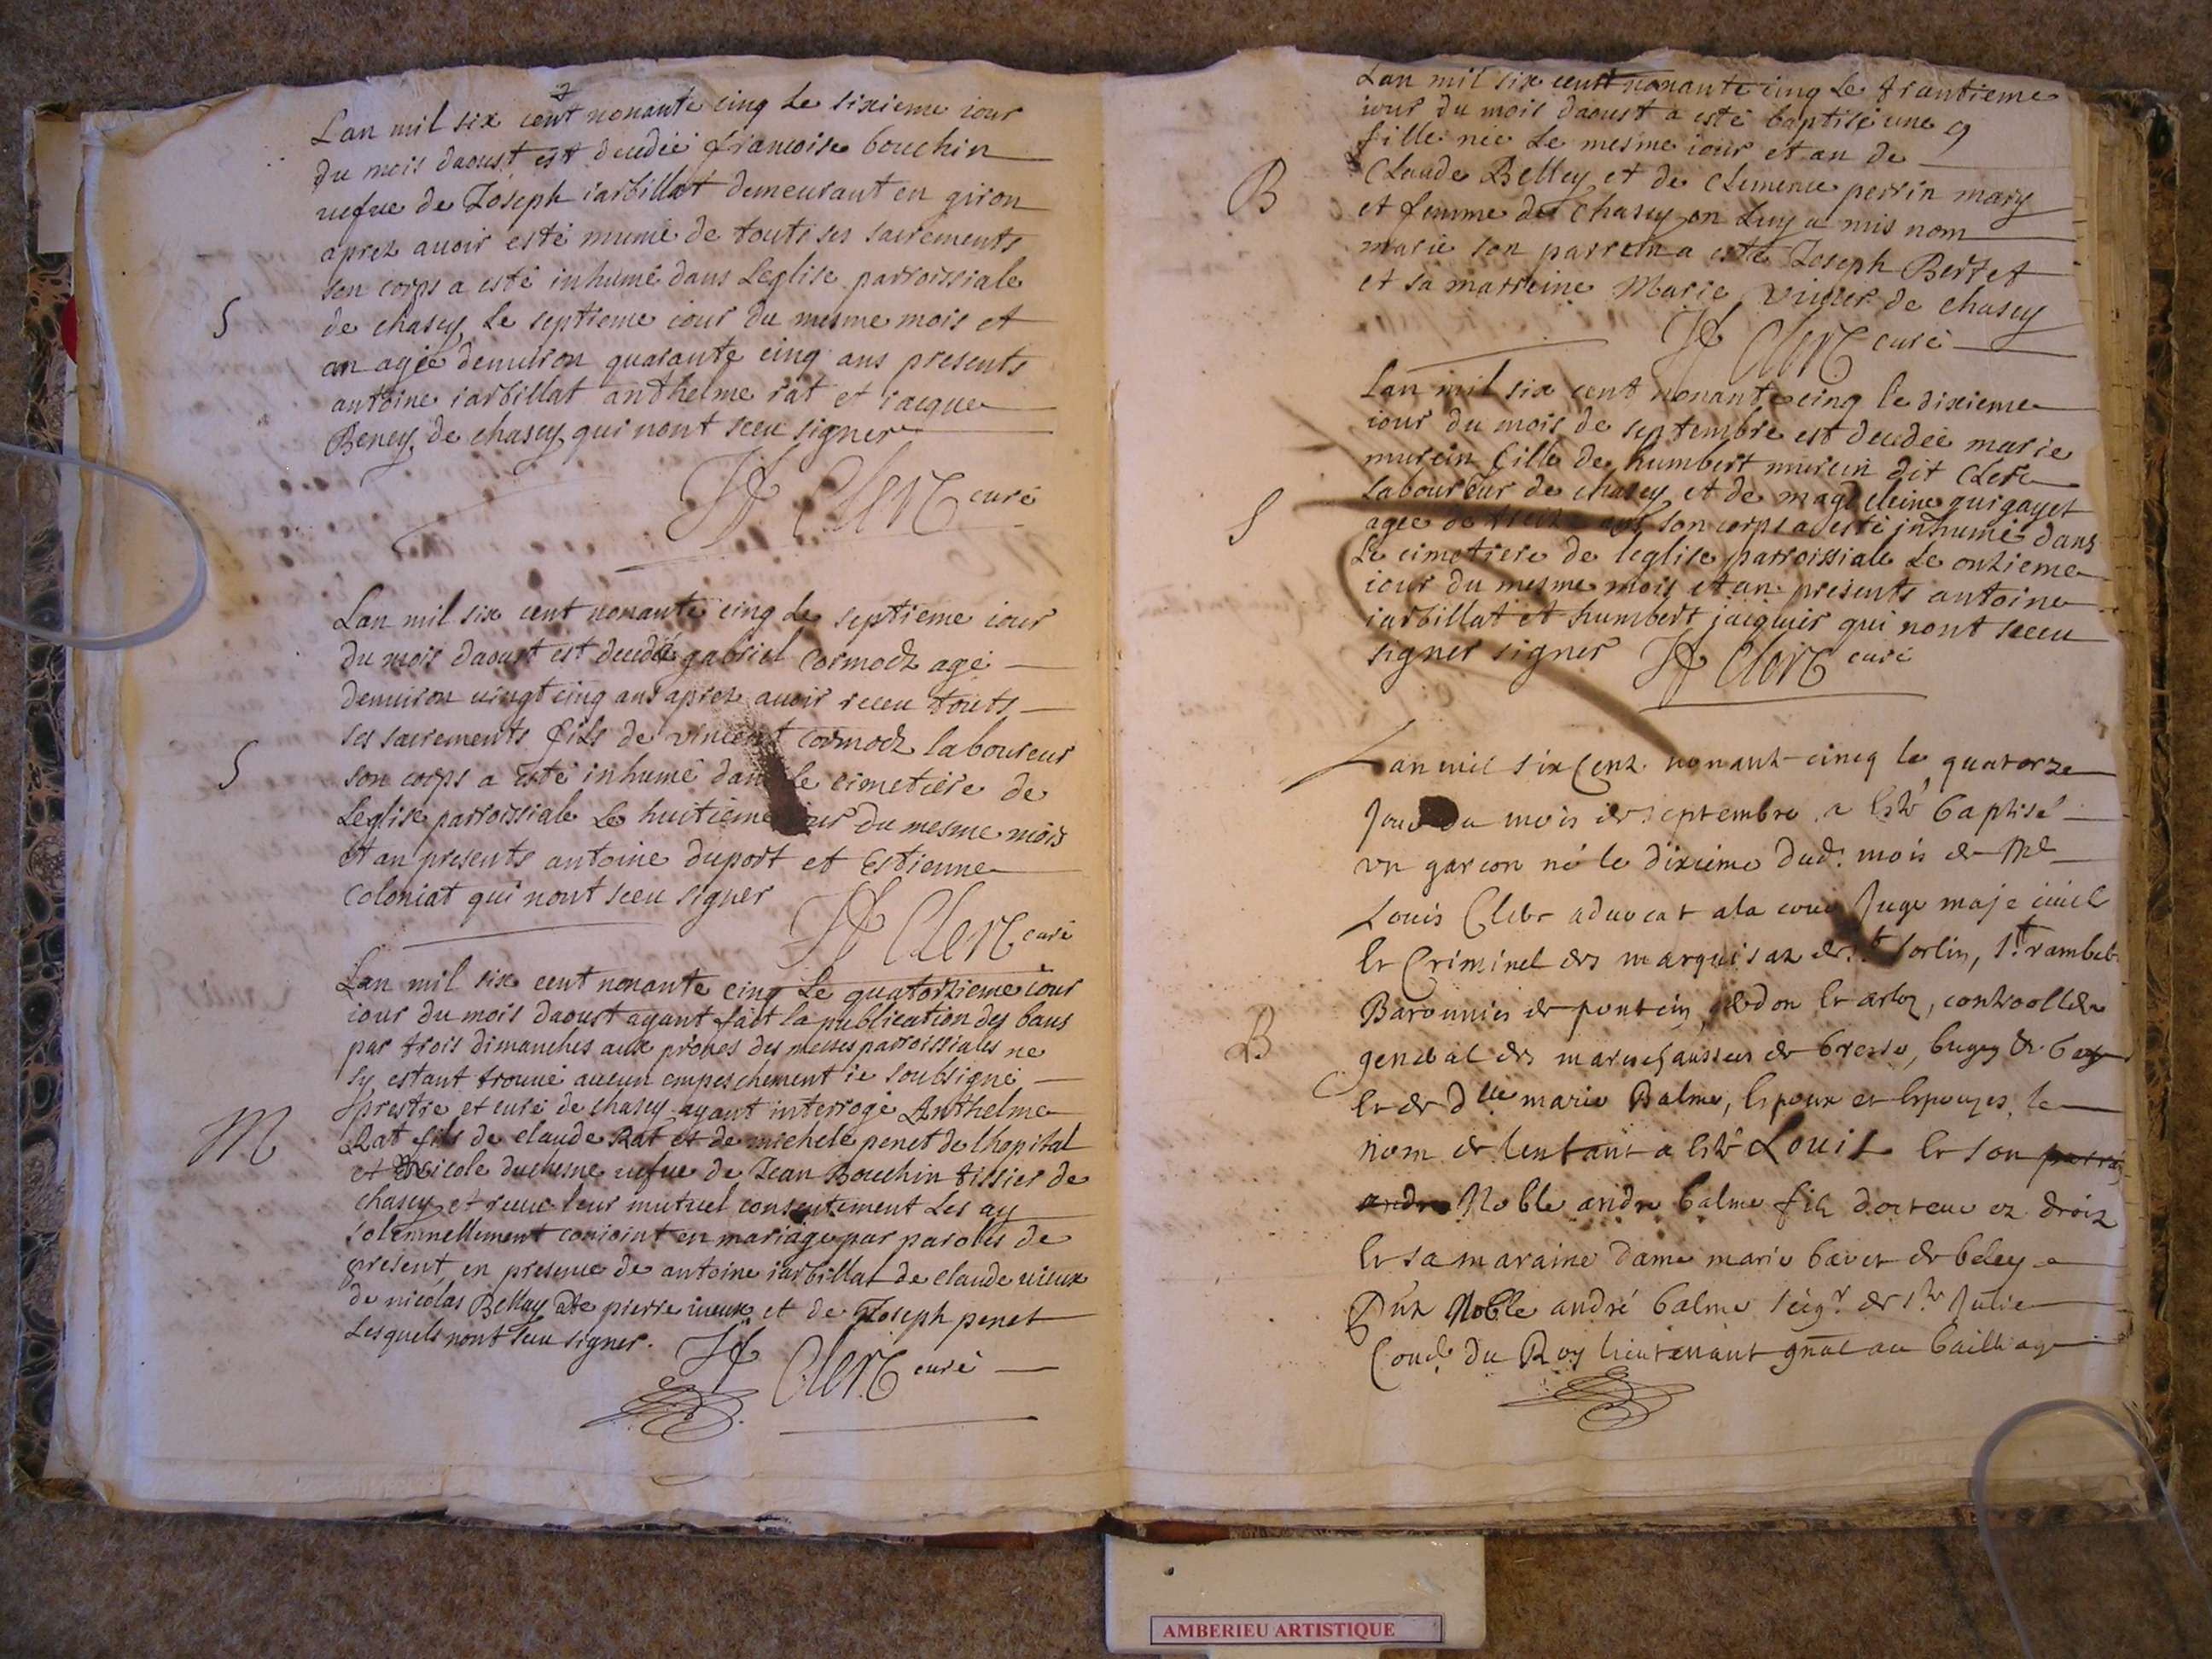 Lan mil six cent nonante cinq Le sixieme iour
du mois daoust est decedée francoise bouchin
uefue de Joseph iarbillat demeurant en giron
aprez auoir esté munie de touts ses sacrements
son corps a esté inhumé dans Leglise parroissiale
S
de chasey Le septieme iour du mesme mois et
an agée denuiron quarante cinq ans presents
antoine iarbillat anthelme rat et iacque
Beney de chasey qui nont sceu signer
Clerc curé
Lan mil six cent nonante cinq Le septieme iour
du mois daoust est decedé gabriel Cormoz agé
denuiron uingt cinq ans aprez auoir receu touts
ses sacrements fils de vincent cormoz laboureur
S
son corps a esté inhumé dans le cimetiere de
Leglise parroissiale Le huitieme iour du mesme mois
et an presents antoine duport et Estienne
Coloniat qui nont sceu signer
Clerc curé
Lan mil six cent nonante cinq Le quatorzieme iour
iour du mois daoust ayant fait la publication des bans
par trois dimanches aux prones des messes parroissiales ne
sy estant trouué aucun empeschement ie soubsigné
prestre et curé de chasey ayant interrogé Anthelme
M
Rat fils de claude Rat et de michele penet de lhopital
et Nicole duchesne uefue de Jean Bouchin tissier de
chasey et receu leur mutuel consentement Les ay
solemnellement conioint en mariage par paroles de
present en presence de antoine iarbillat de claude uieux
de nicolas Bellay de pierre uieux et de Joseph penet
Lesquels nont sceu signer.
Clerc curé
Lan mil six cent nonante cinq Le trantieme
iour du mois daoust a esté baptisé une
fille née Le mesme iour et an de
B
Claude Belley et de Clemence perrin mary
et femme de Chasey on Luy a mis nom
marie son parrein a esté Joseph Bertet
et sa marreine Marie de chasey
Clerc curé
Lan mil six cent nonante cinq le dixieme
iour du mois de septembre est decedée marie
murcin fille de humbert murcin dit Clerc
Laboureur de chasey et de magdeleine guigayet
S
agée de son corps a esté inhumé dans
Le cimetiere de leglise parroissiale Le onzieme
iour du mesme mois et an presents antoine
iarbillat et humbert jacquier qui nont sceu
signer signer Clerc curé
Lan mil six Cent nonant cincq le quatorze
Jour du mois de septembre a esté baptisé
un garcon né le dixieme dud. mois de Me
Louis Clerc aduocat a la cour Juge maje ciuil
et Criminel des marquisaz de St sorlin, St rambert
Baronnies de poncin, et controlleur
B
general des marechaussees de bresse, bugey & Gex
et de Dlle marie Balme, espoux et espouzes, le
nom de lenfant a esté Louis et son
andre Noble andre balme fils docteur ez droiz
et sa maraine dame marie de beley
Noble andré balme seigr de Julie
Conr du Roy lieutenant gnal au bailliage
AMBERIEU ARTISTIQUE